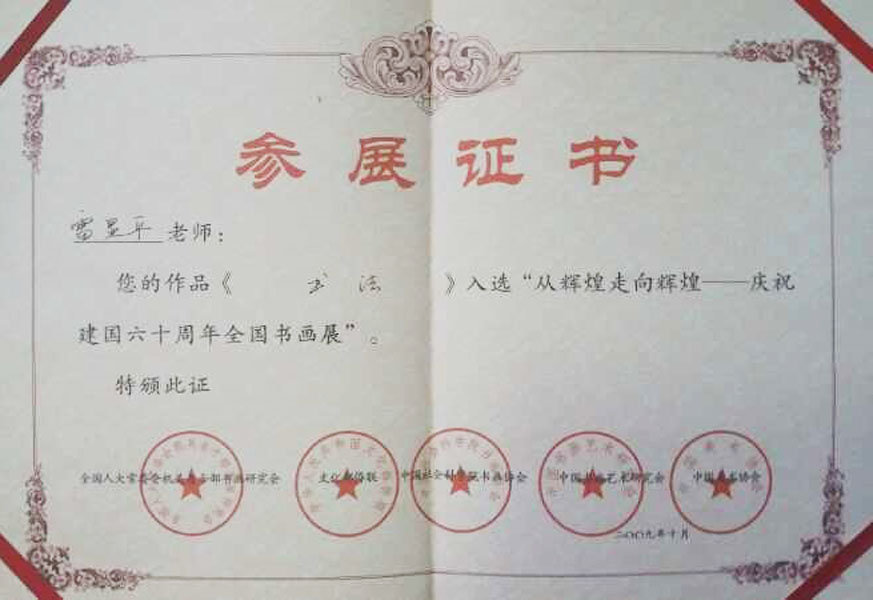 参展证书
雷显平老师：
您的作品《 书 法 》入选“从辉煌走向辉煌——庆祝
建国六十周年全国书画展”。
特颁此证
全国人大常委会机关老干部书画研究会 文化部侨联 中国社会科学院书画协会 中国书画艺术研究会 中国美术协会
二〇〇九年十月